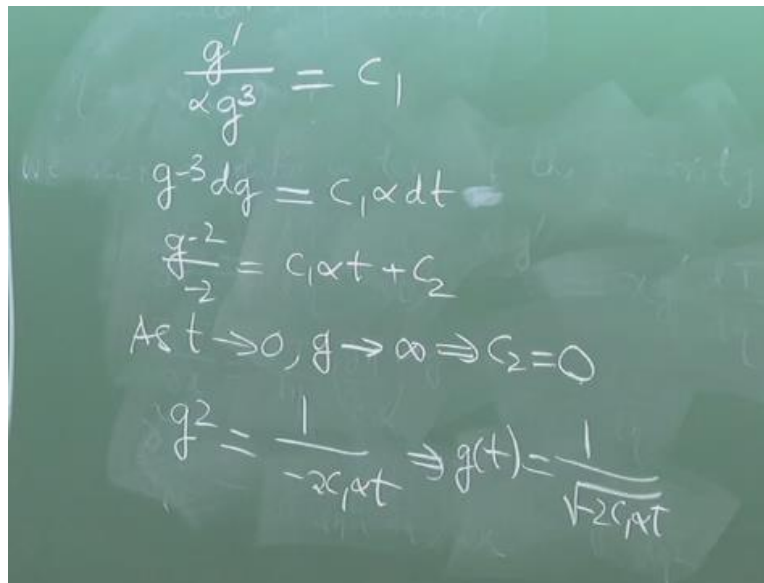 g'/αg³ = C₁
g⁻³dg = C₁αdt
g⁻²/-2 = C₁αt + C₂
As t → 0, g → ∞ ⇒ C₂ = 0
g² = 1/-2C₁αt ⇒ g(t) = 1/√-2C₁αt